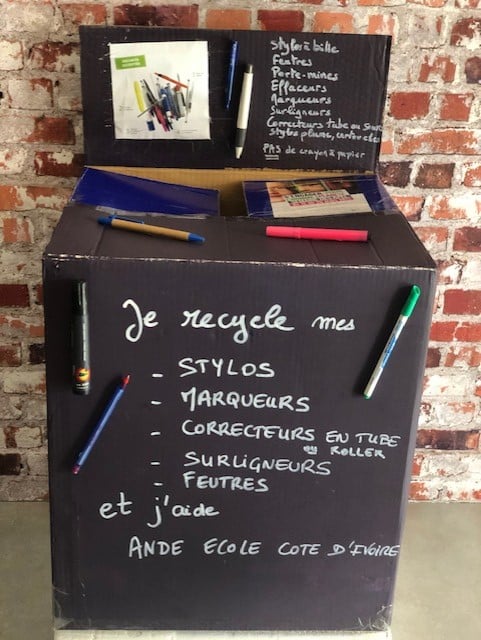 Stylo à bille
Feutres
Porte-mines
Effaceurs
Marqueurs
Surligneurs
Correcteurs tube ou souris
stylos plume, cartouches
PAS de crayon à papier
Je recycle mes
- STYLOS
- MARQUEURS
- CORRECTEURS EN TUBE
ou ROLLER
- SURLIGNEURS
- FEUTRES
et j'aide
ANDE ECOLE COTE D'IVOIRE